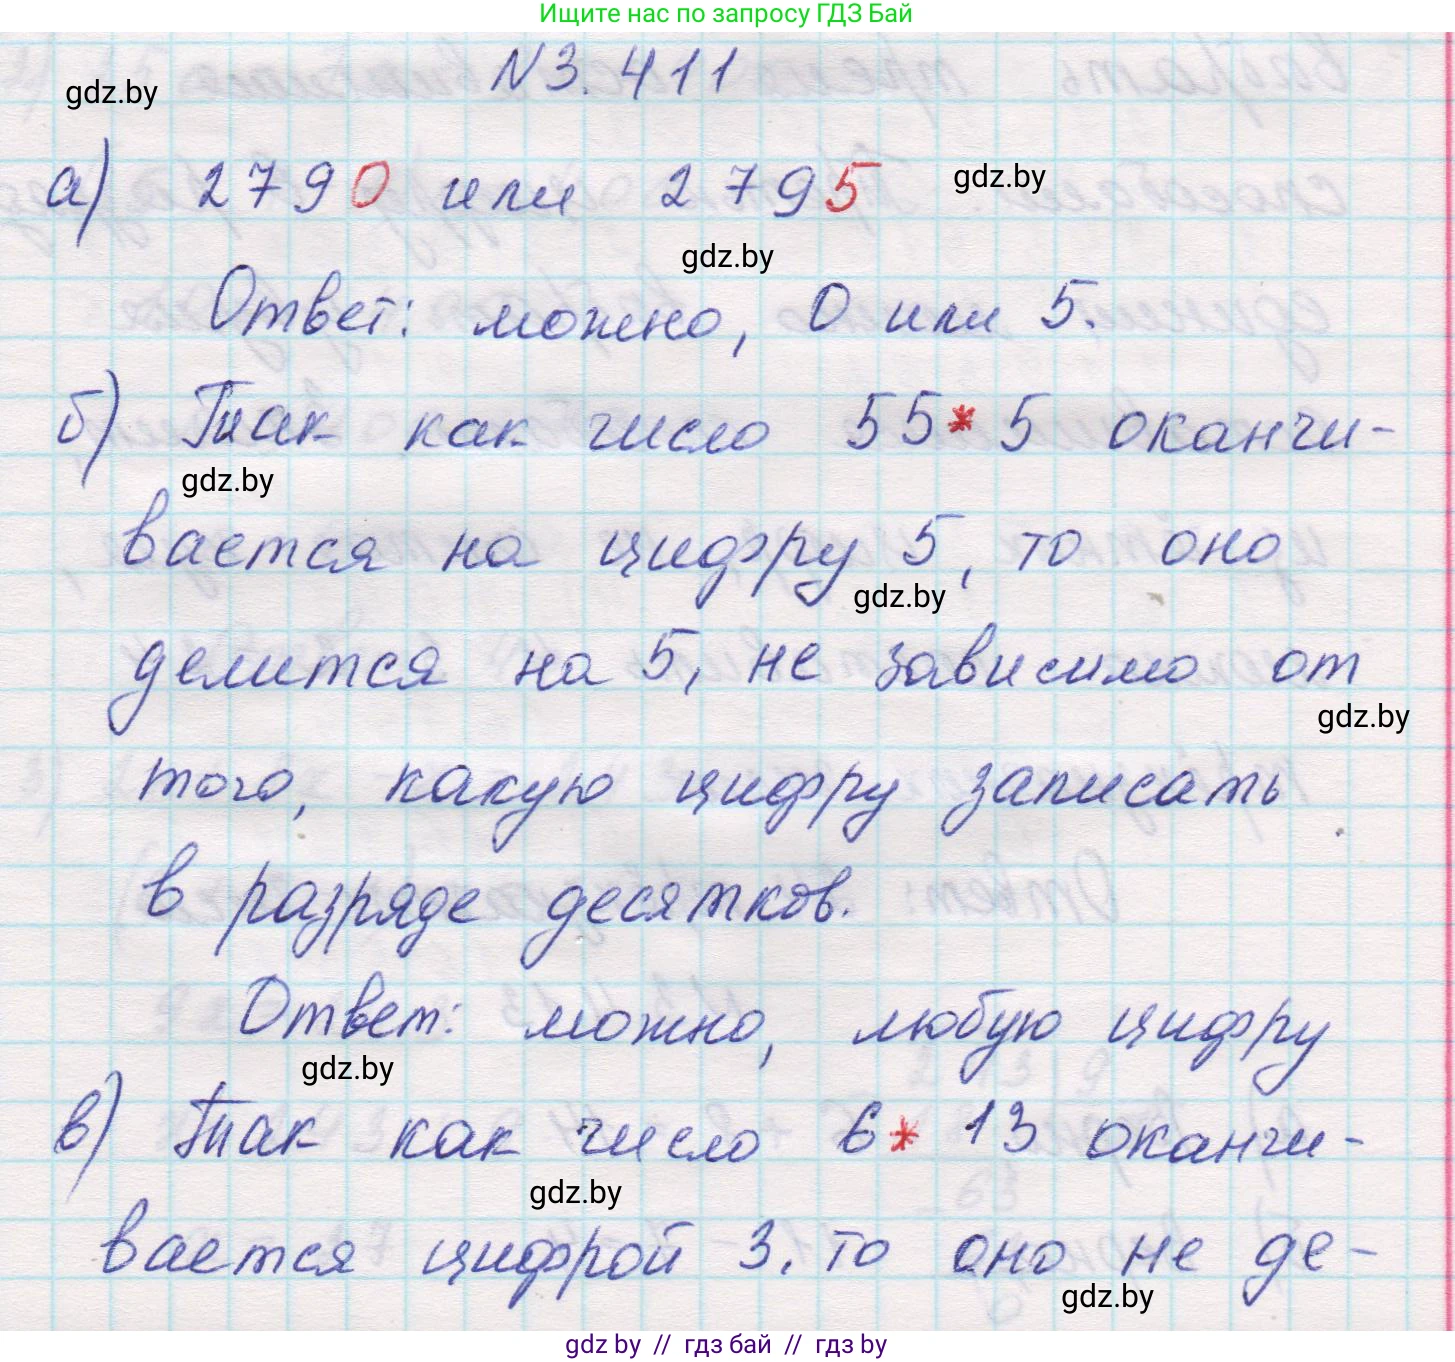 Ищите нас по запросу ГДЗ Бай
N3.411
gdz.by
а) 2790 или 2795
gdz.by
gdz.by
Ответ: можно, 0 или 5.
б) Так как число 55*5 оканчи-
gdz.by
вается на цифру 5, то оно
gdz.by
делится на 5, не зависимо от
gdz.by
того, какую цифру записать
в разряде десятков.
Ответ: можно, любую цифру
gdz.by
в) Так как число 6*13 оканчи-
gdz.by
вается цифрой 3, то оно не де-
gdz.by
gdz by // гдз бай // гдз by